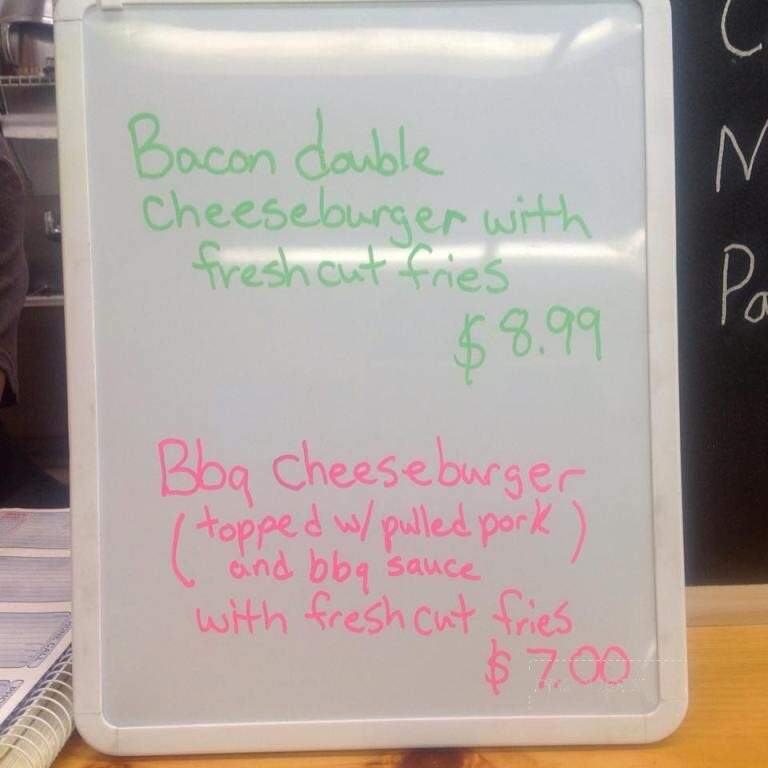 Bacon double
cheeseburger with
fresh cut fries
$8.99
Bbq cheeseburger
(topped w/ pulled pork)
and bbq sauce
with fresh cut fries
$7.00
C
N
Pa